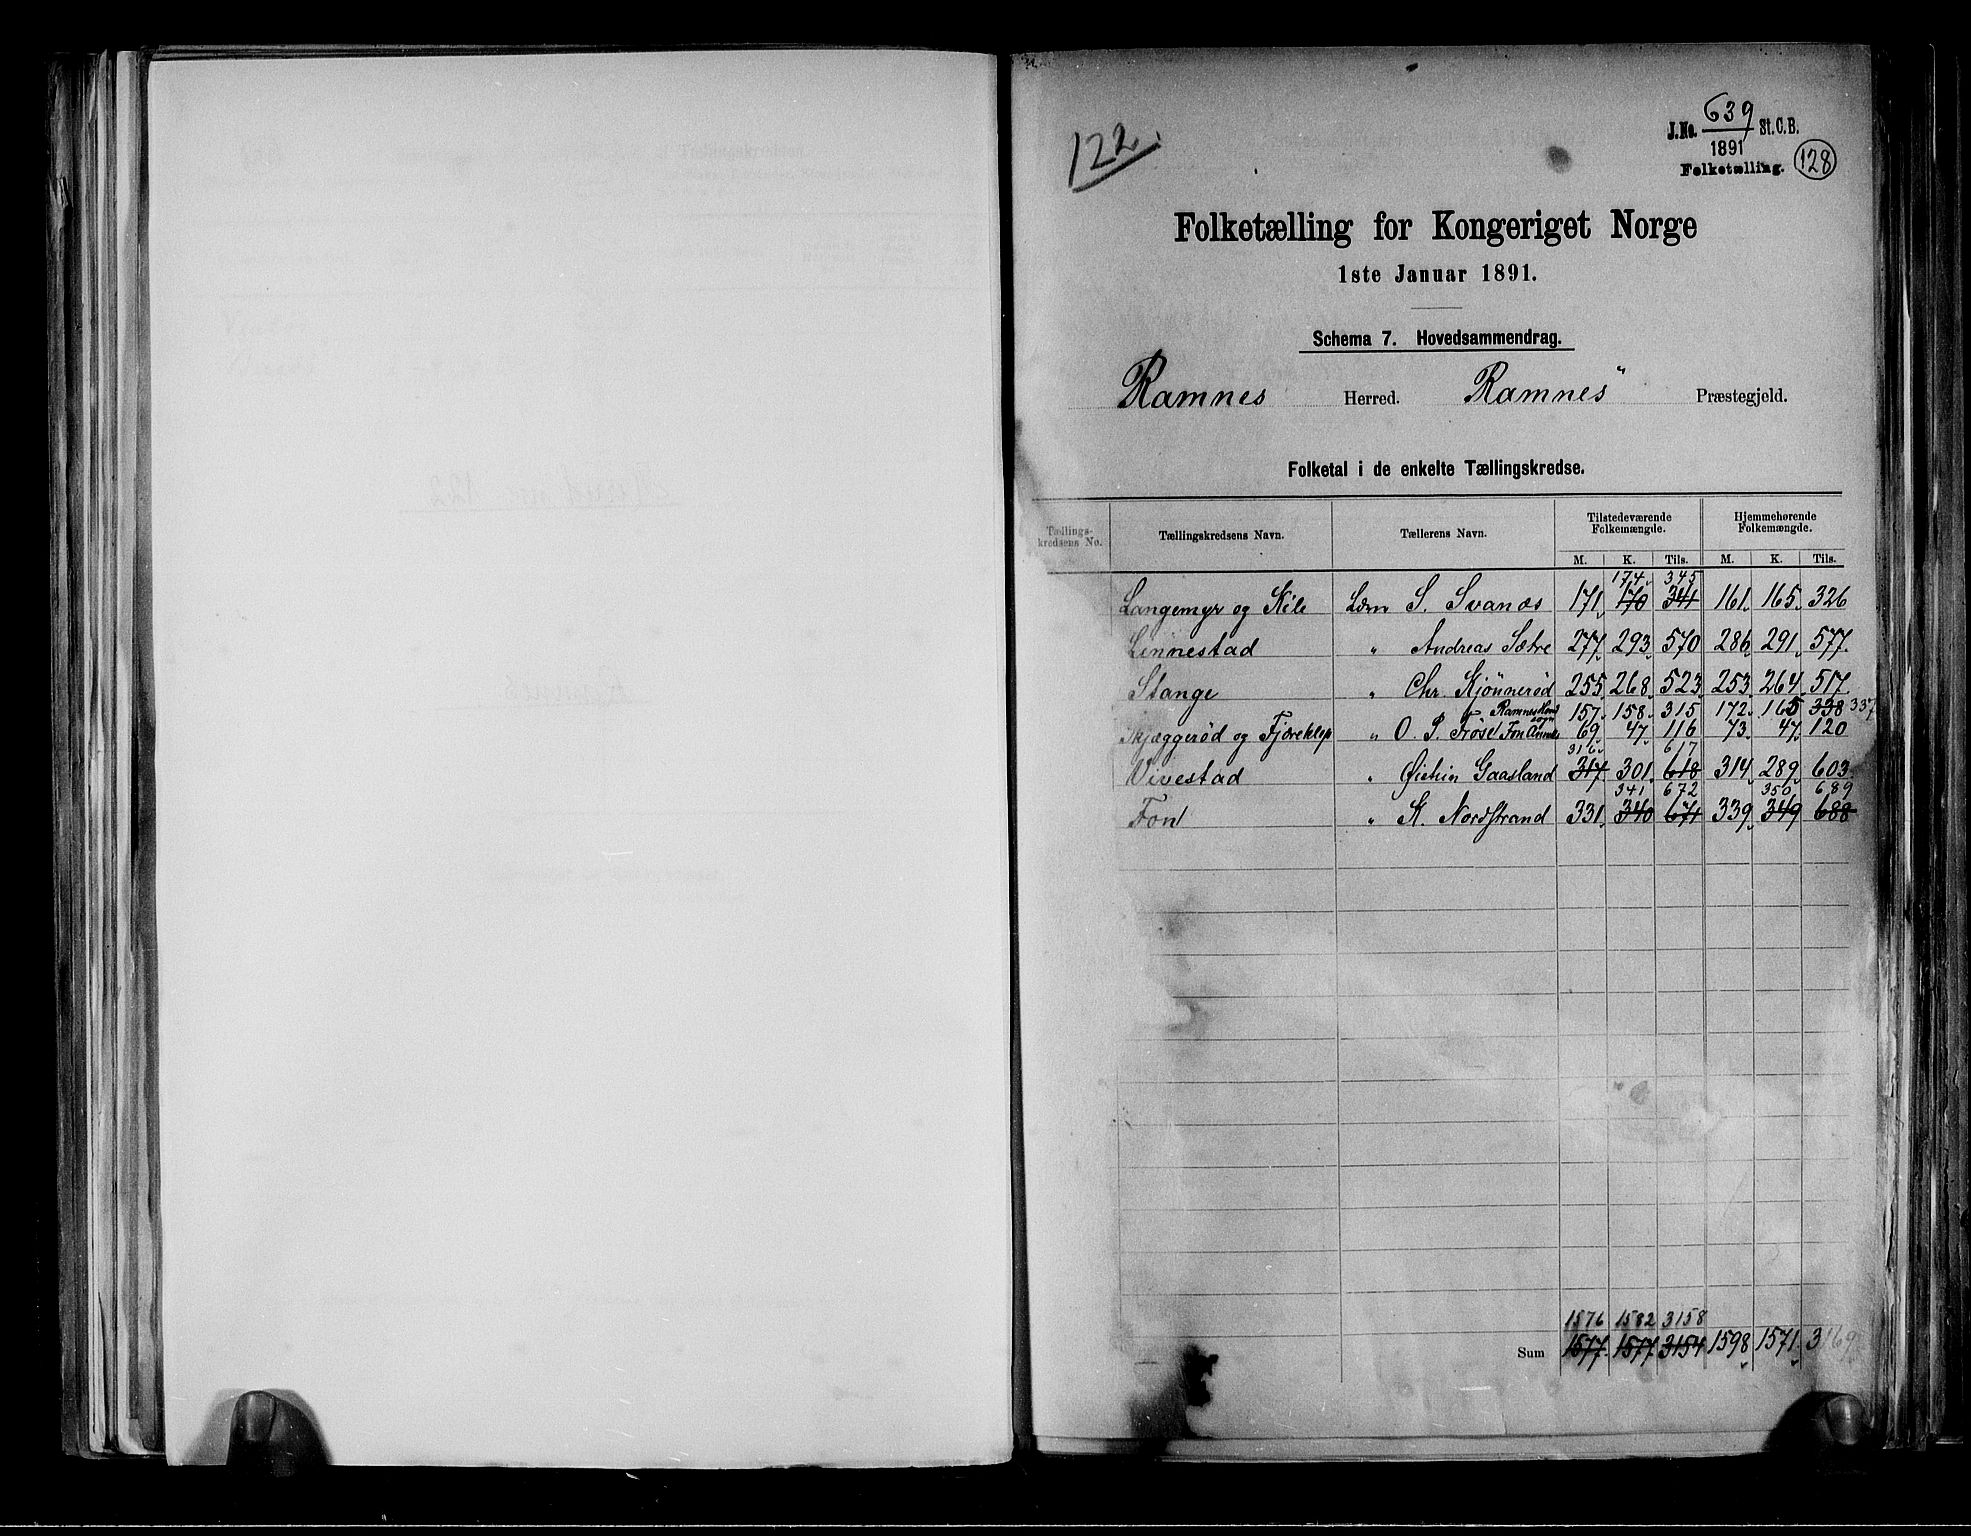 122.
J.No. 639 St.C.B.
1891
Folketælling.
128
Folketælling for Kongeriget Norge
1ste Januar 1891.
Schema 7. Hovedsammendrag.
Ramnes Herred. Ramnes Præstegjeld.
Folketal i de enkelte Tællingskredse.
Tællings-kredsens No. Tællingskredsens Navn. Tællerens Navn. Tilstedeværende Folkemængde. Hjemmehørende Folkemængde.
M. K. Tils. M. K. Tils.
174. 345
Langemyr og Kile Lærer S. Svanøs 171. 170 341 161. 165. 326
Linnestad " Andreas Sætre 277. 293. 570 286. 291. 577.
Stange " Chr. Kjønnerød 255. 268. 523. 253. 264. 517.
Ramnes Hovedsogn 157. 158. 315 172. 165 338 337
Skjæggerød og Fjæreklep " O. P. Frøsel Fon Annex 69. 47. 116 73. 47. 120
316. 617
Vivestad " Øistein Gaasland 317 301. 618 314. 289. 603.
341 672 350 689
Fon " K. Nordstrand 331. 340 671 339. 349 688
1576 1582 3158
Sum 1577. 1577 3154 1598 1571. 3169